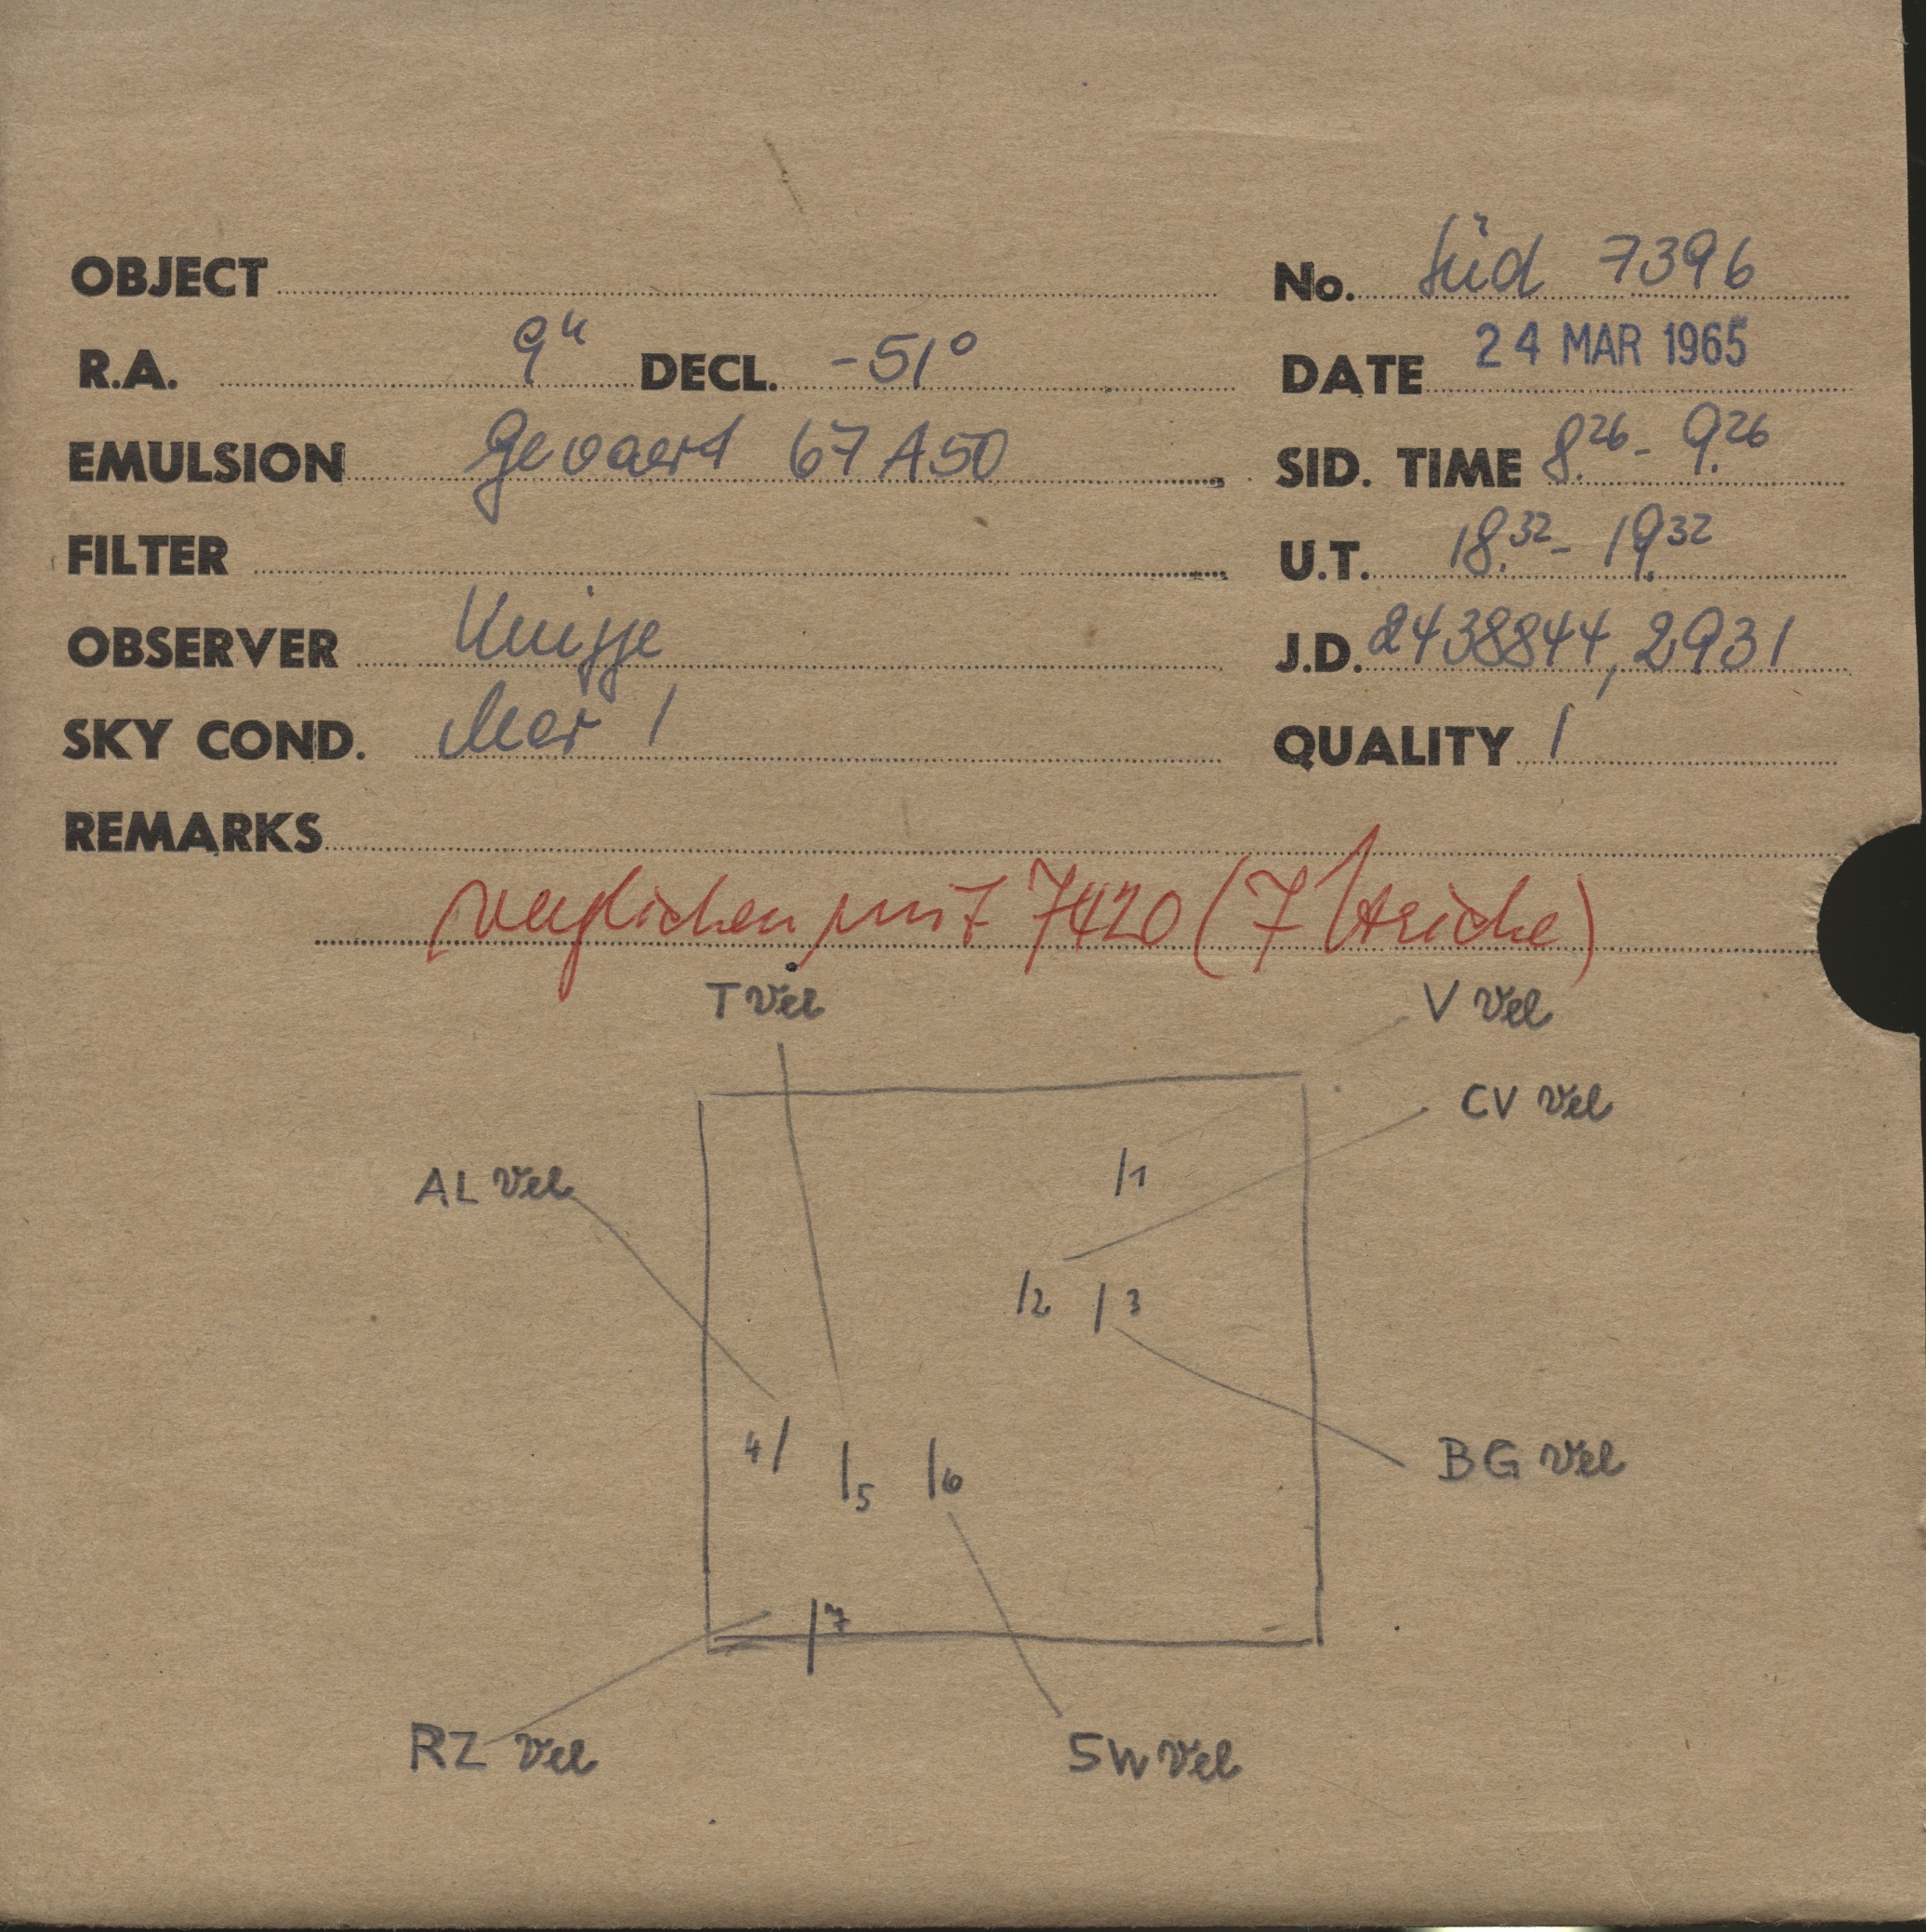 OBJECT No. Süd 7396
R.A. 9h DECL. -51° DATE 24 MAR 1965
EMULSION Gevaert 67 A 50 SID. TIME 8.26 - 9.26
FILTER U.T. 18.32 - 19.32
OBSERVER J.D. 2438844,2931
SKY COND. klar 1 QUALITY 1
REMARKS
verglichen mit 7420 (7 Striche)
T Vel V Vel
CV Vel
AL Vel
1
2 3
4 5 6
BG Vel
7
RZ Vel SW Vel